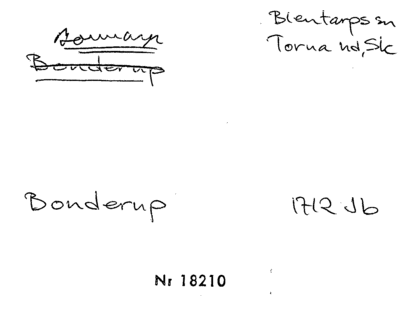 Blentarps sn
Torna hd, Sk
Bonderup
Bonderup
1712 Jb
Nr 18210